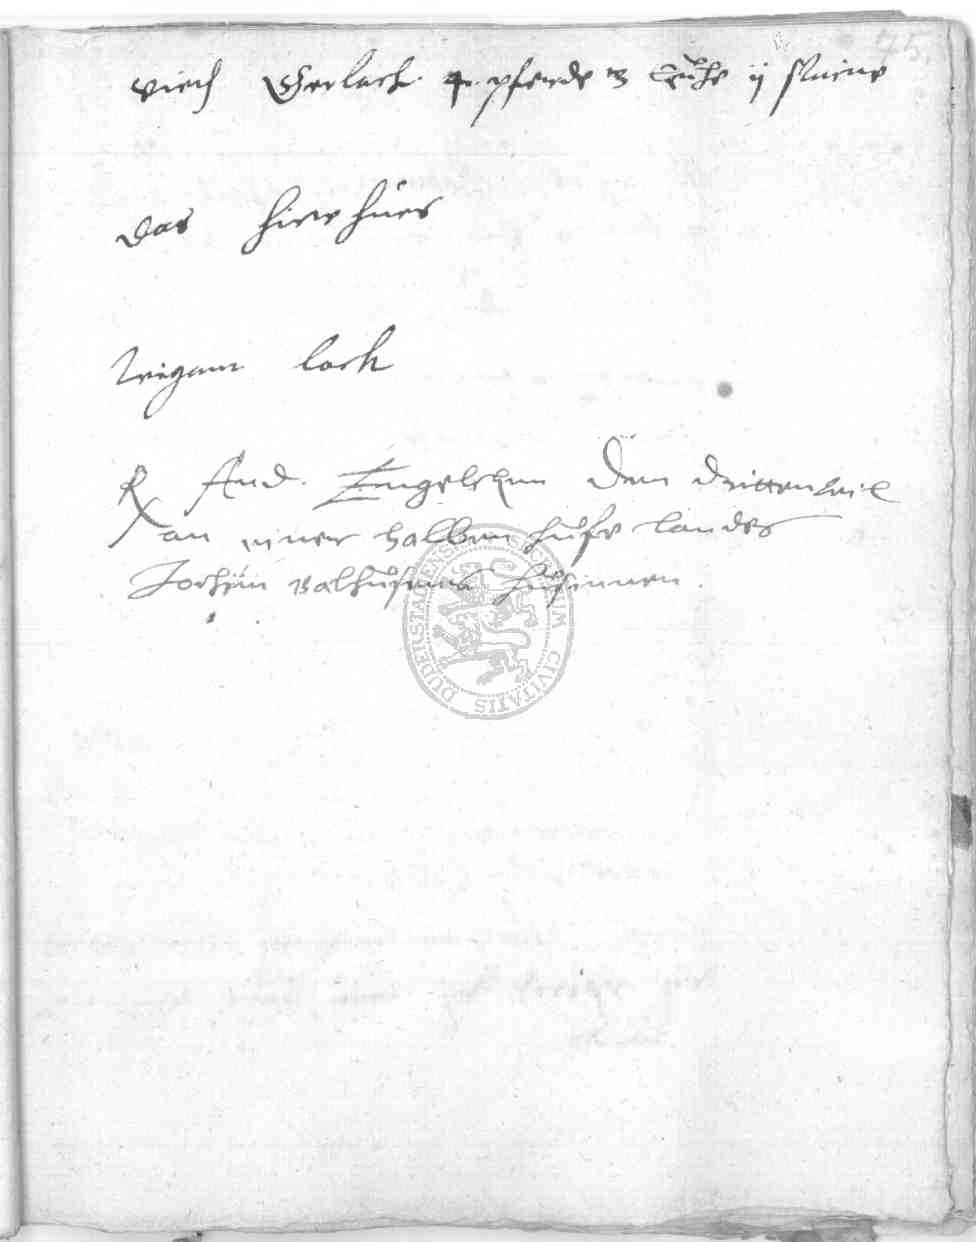 75
viech Gerlach 4 pferde 3 kuhe ij sweine
das hirn hues
Wigant loch
And. Engelehen dem dritten teil
an einer halben hufe landes
Jochim Balhusens
SIGILLUM CIVITATIS DUDERSTADENSIS